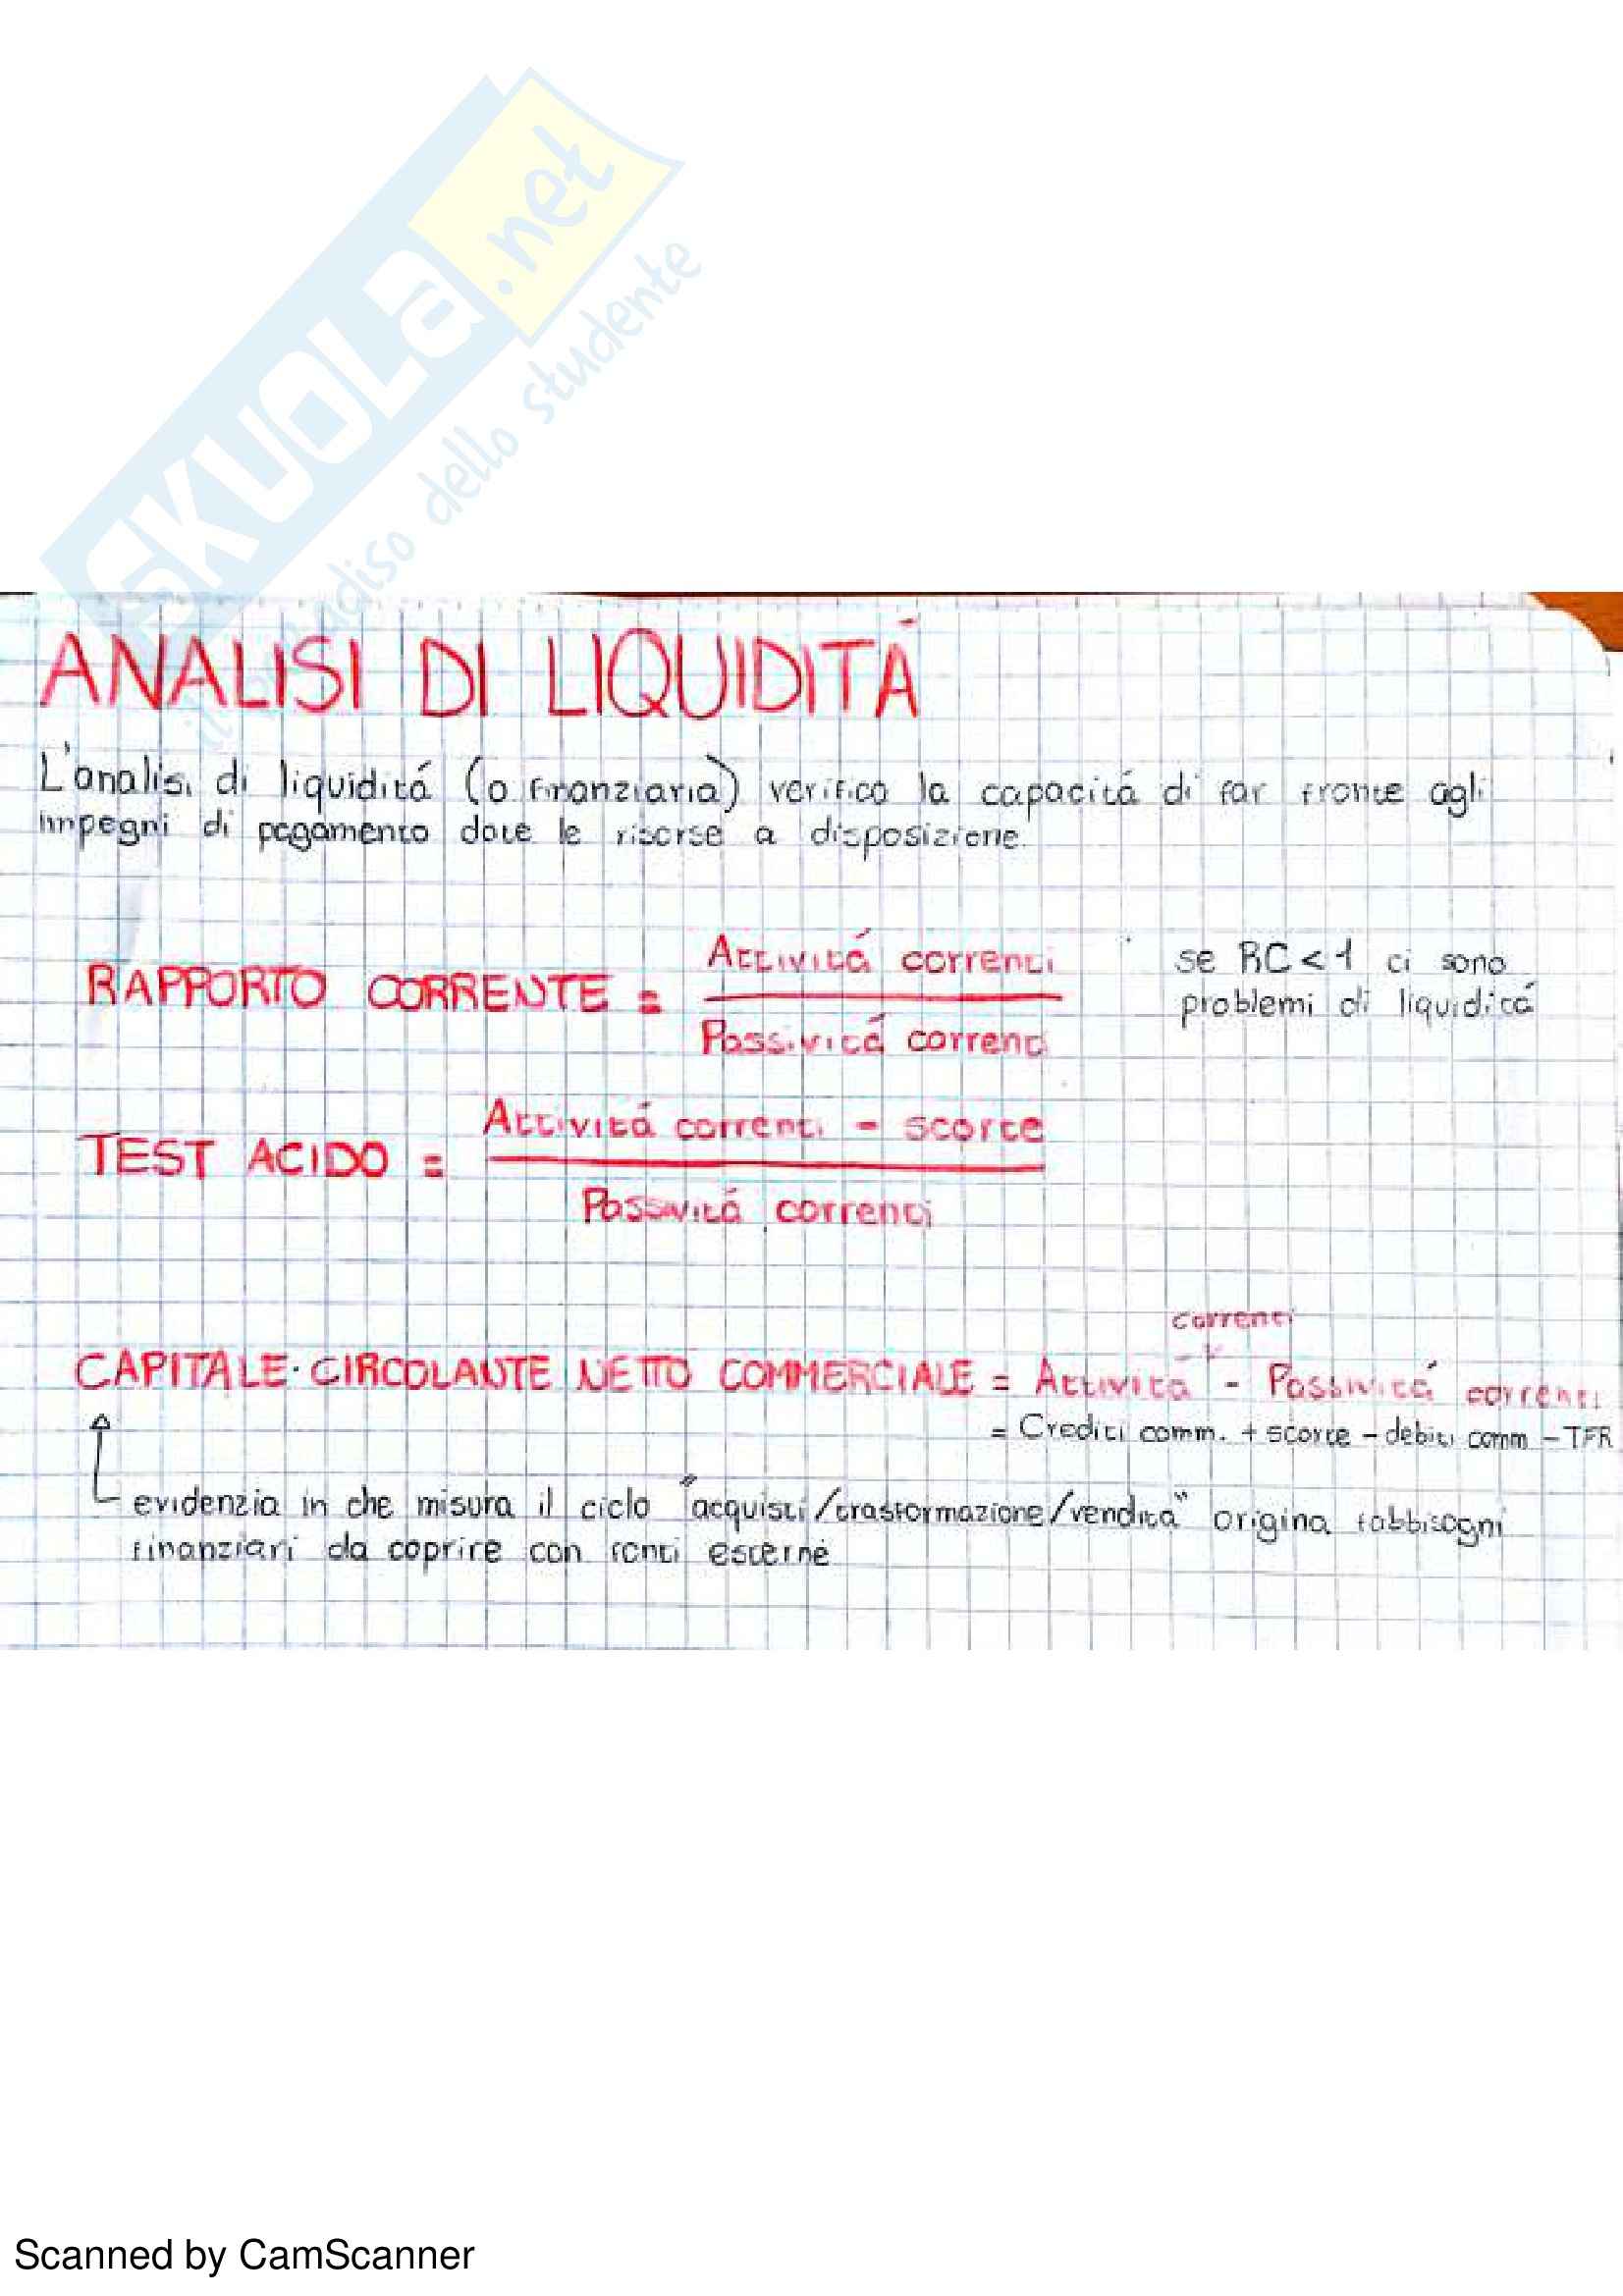 SKUOLA.net
il paradiso dello studente
ANALISI DI LIQUIDITÁ
L'analisi di liquiditá (o finanziaria) verifica la capacitá di far fronte agli
impegni di pagamento date le risorse a disposizione.
RAPPORTO CORRENTE = Attivitá correnti
Passivitá correnti
se RC < 1 ci sono
problemi di liquiditá
TEST ACIDO = Attivitá correnti - scorte
Passivitá correnti
correnti
CAPITALE CIRCOLANTE NETTO COMMERCIALE = Attivitá - Passivitá correnti
= Crediti comm. + scorte - debiti comm - TFR
evidenzia in che misura il ciclo "acquisti/trasformazione/vendita" origina fabbisogni
finanziari da coprire con fonti esterne
Scanned by CamScanner